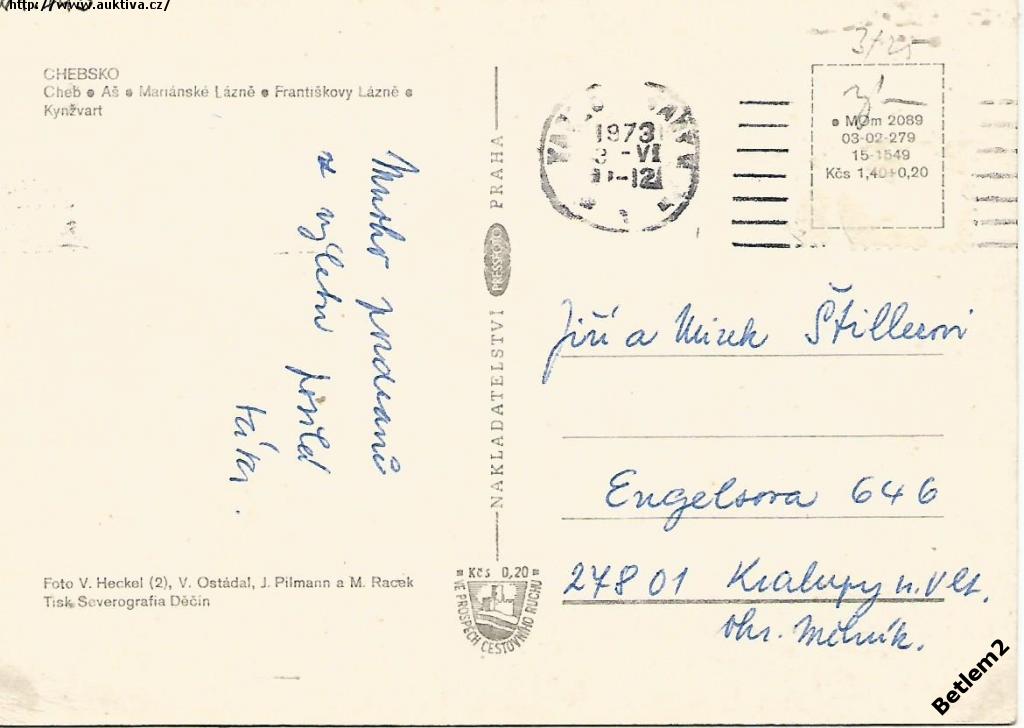 http://www.auktiva.cz/
CHEBSKO
Cheb • Aš • Mariánské Lázně • Františkovy Lázně •
Kynžvart
Mnoho pozdravů
z výletu posílá
táta.
Foto V. Heckel (2), V. Ostádal, J. Pilmann a M. Racek
Tisk Severografia Děčín
NAKLADATELSTVÍ PRESSFOTO PRAHA
Kčs 0,20
VE PROSPĚCH CESTOVNÍHO RUCHU
KARLOVY VARY
1973
-VI
-12
3/25
MOm 2089
03-02-279
15-1549
Kčs 1,40+0,20
Jiří a Mirek Štillerovi
Engelsova 646
278 01 Kralupy n. Vlt.
okr. Mělník.
Betlem2